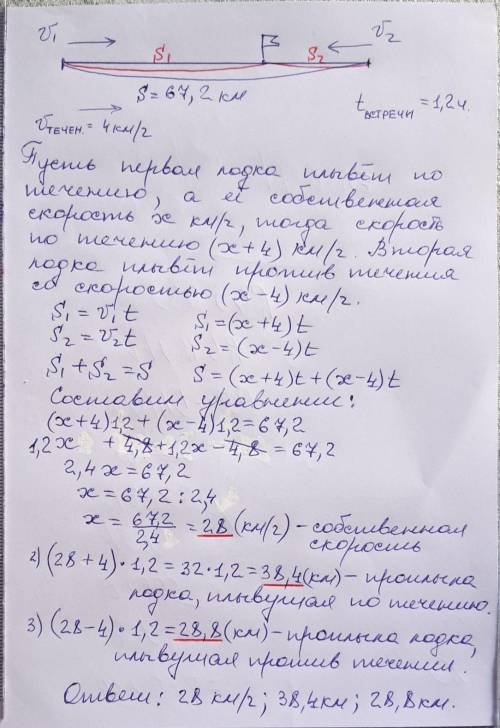 v₁ S₁ S₂ v₂
S = 67,2 км
tвстречи = 1,2 ч.
vтечен. = 4 км/г
Пусть первая лодка плывёт по
течению, а её собственная
скорость x км/г, тогда скорость
по течению (x+4) км/г. Вторая
лодка плывёт против течения
со скоростью (x-4) км/г.
S₁ = v₁t S₁ = (x+4)t
S₂ = v₂t S₂ = (x-4)t
S₁ + S₂ = S S = (x+4)t + (x-4)t
Составим уравнение:
(x+4)1,2 + (x-4)1,2 = 67,2
1,2x + 4,8 + 1,2x - 4,8 = 67,2
2,4x = 67,2
x = 67,2 : 2,4
x = 67,2/2,4 = 28 (км/г) - собственная
скорость
2) (28+4)·1,2 = 32·1,2 = 38,4 (км) - проплыла
лодка, плывущая по течению.
3) (28-4)·1,2 = 28,8 (км) - проплыла лодка,
плывущая против течения.
Ответ: 28 км/г; 38,4 км; 28,8 км.